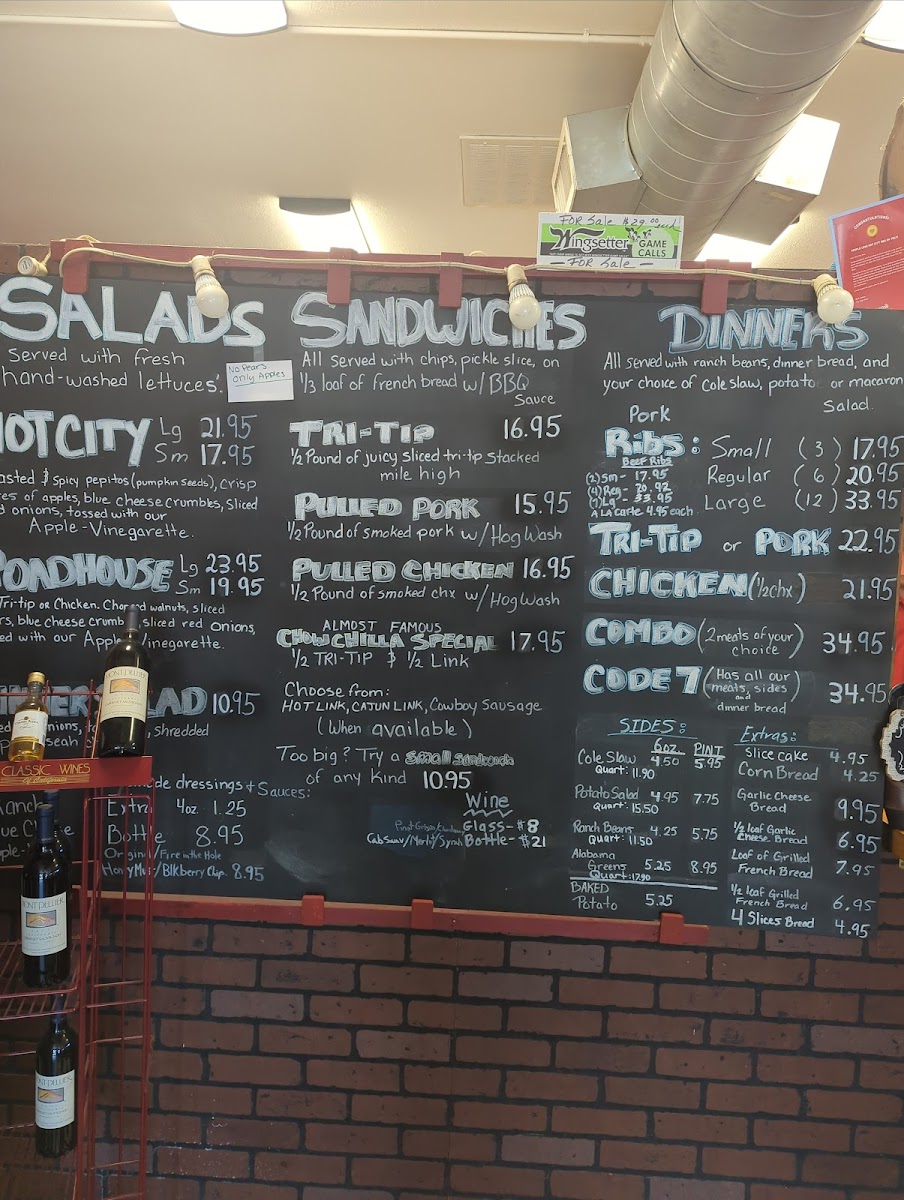 FOR Sale $29.00
Wingsetter GAME CALLS
FOR Sale
CONGRATULATIONS!
SALADS
Served with fresh
hand-washed lettuces.
No Pears
Only Apples
HOT CITY Lg 21.95
Sm 17.95
Spicy pepitos (pumpkin seeds), crisp
of apples, blue cheese crumbles, sliced
onions, tossed with our
Apple-Vinegarette.
PONDHOUSE Lg 23.95
Sm 19.95
Tri-tip or Chicken. walnuts, sliced
blue cheese sliced red onions,
with our Vinegarette.
10.95
shredded
dressings & Sauces:
Extra 4oz. 1.25
Bottle 8.95
Original/Fire in the Hole
Blkberry Chip. 8.95
CLASSIC WINES
of California
MONTPELLIER
MONTPELLIER
MONTPELLIER
SANDWICHES
All Served with chips, pickle slice, on
1/3 loaf of French bread w/BBQ
Sauce
TRI-TIP 16.95
1/2 Pound of juicy sliced tri-tip stacked
mile high
PULLED PORK 15.95
1/2 Pound of smoked pork w/HogWash
PULLED CHICKEN 16.95
1/2 Pound of smoked chx w/HogWash
ALMOST FAMOUS
CHOWCHILLA SPECIAL 17.95
1/2 TRI-TIP & 1/2 Link
Choose from:
HOT LINK, CAJUN LINK, Cowboy Sausage
(When available)
Too big? Try a small sandwich
of any Kind 10.95
Wine
Glass - $8
Cab Sauv/Merlot/Syrah Bottle - $21
DINNERS
All served with ranch beans, dinner bread, and
your choice of coleslaw, potato or macaroni
Salad.
Pork
RIBS: Small (3) 17.95
BEEF Ribs
(2) Sm - 17.95
Regular (6) 20.95
(4) Reg - 20.92
Large (12) 33.95
Lg - 33.95
A LA carte 4.95 each
TRI-TIP or PORK 22.95
CHICKEN (1/2 chx) 21.95
COMBO (2 meats of your choice) 34.95
CODE 7 (Has all our meats, sides and dinner bread) 34.95
SIDES:
6oz PINT
Cole Slaw 4.50 5.95
Quart: 11.90
Potato Salad 4.95 7.75
Quart: 15.50
Ranch Beans 4.25 5.75
Quart: 11.50
Alabama
Greens 5.25 8.95
Quart: 17.90
BAKED
Potato 5.25
Extras:
Slice cake 4.95
Corn Bread 4.25
Garlic Cheese
Bread 9.95
1/2 loaf Garlic
Cheese Bread 6.95
Loaf of Grilled
French Bread 7.95
1/2 loaf Grilled
French Bread 6.95
4 Slices Bread 4.95